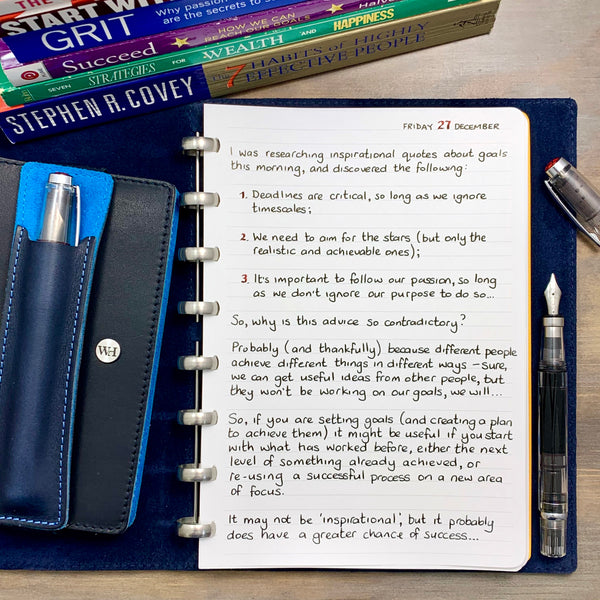 THE
START WITH
GRIT
Why passion
are the secrets to s
Succeed
HOW WE CAN
REACH OUR GOALS
Halvo
SEVEN STRATEGIES FOR WEALTH AND HAPPINESS
STEPHEN R. COVEY
The 7 HABITS OF HIGHLY
EFFECTIVE PEOPLE
WH
FRIDAY 27 DECEMBER
I was researching inspirational quotes about goals
this morning, and discovered the following:
1. Deadlines are critical, so long as we ignore
timescales;
2. We need to aim for the stars (but only the
realistic and achievable ones);
3. It's important to follow our passion, so long
as we don't ignore our purpose to do so...
So, why is this advice so contradictory?
Probably (and thankfully) because different people
achieve different things in different ways - sure,
we can get useful ideas from other people, but
they won't be working on our goals, we will...
So, if you are setting goals (and creating a plan
to achieve them) it might be useful if you start
with what has worked before, either the next
level of something already achieved, or
re-using a successful process on a new area
of focus.
It may not be 'inspirational', but it probably
does have a greater chance of success...